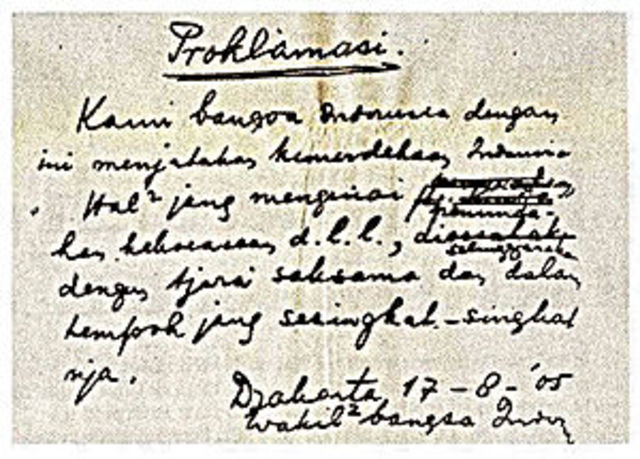 Proklamasi.
Kami bangsa Indonesia dengan
ini menjatakan kemerdekaan Indonesia
. Hal² jang mengenai
kan kekoeasaan d.l.l., diselenggarakan
dengan tjara saksama dan dalam
tempoh jang sesingkat-singkat
nja.
Djakarta 17 - 8 - '05
Wakil² bangsa Indon